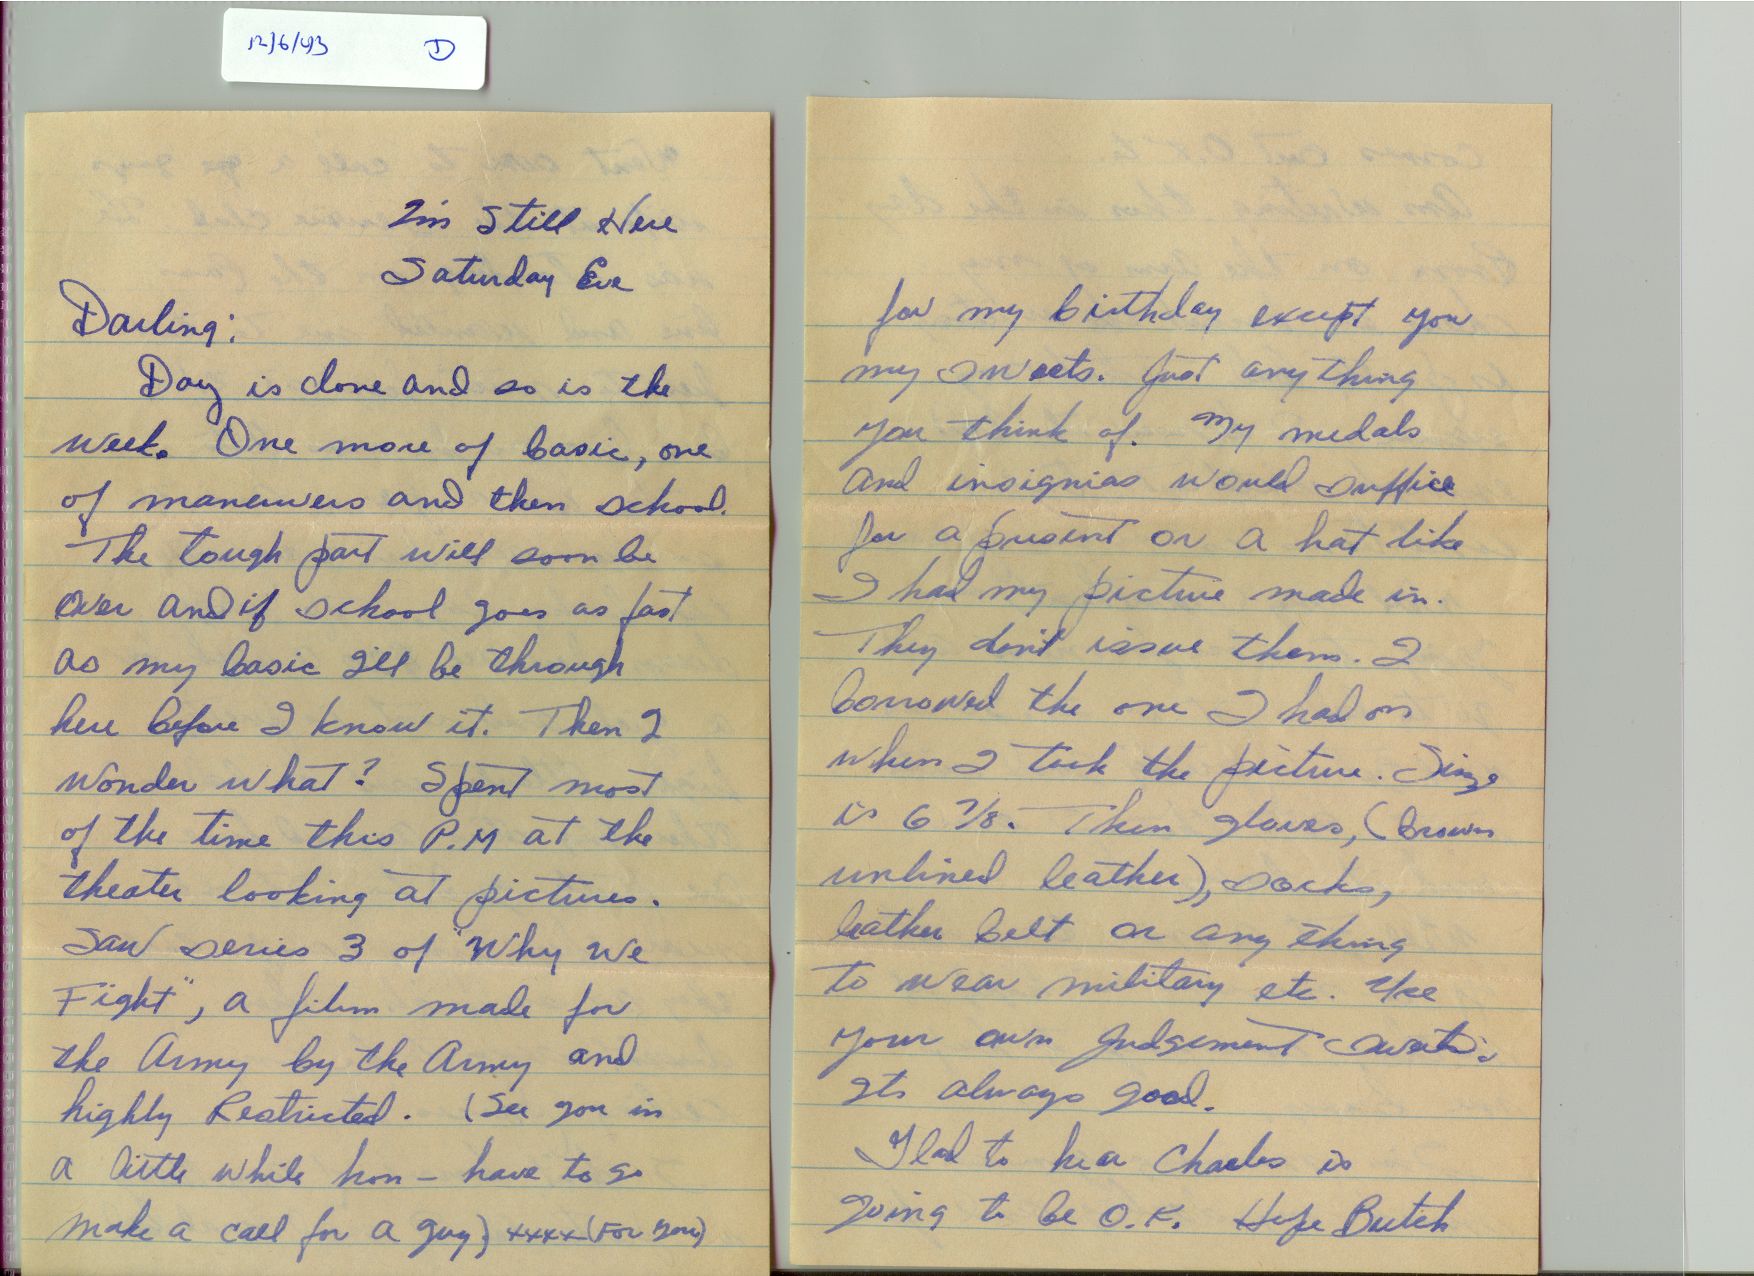 12/6/43 D
I'm Still Here
Saturday Eve
Darling:
Day is done and so is the
week. One more of basic, one
of maneuvers and then school.
The tough part will soon be
over and if school goes as fast
as my basic I'll be through
here before I know it. Then I
wonder what? Spent most
of the time this P.M at the
theater looking at pictures.
Saw series 3 of "Why We
Fight", a film made for
the Army by the Army and
highly Restricted. (See you in
a little while hon - have to go
make a call for a guy) xxxx (For you)
for my birthday except you
my sweets. Just anything
you think of. My medals
and insignias would suffice
for a present or a hat like
I had my picture made in.
They don't issue them. I
borrowed the one I had on
when I took the picture. Size
is 6 7/8. Then gloves, (brown
unlined leather), socks,
leather belt or any thing
to wear military etc. Use
your own judgement sweets.
Its always good.
Glad to hear Charles is
going to be O.K. Hope Butch